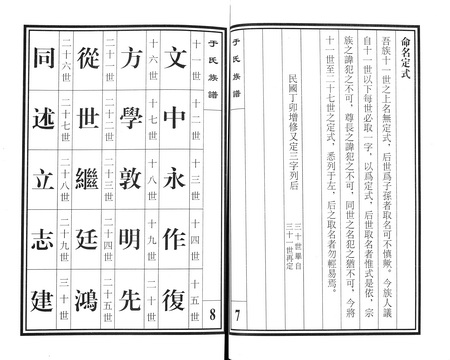 命名定式
吾族十一世之上名無定式，后世爲子孫者取名可不慎歟。今族人議
自十一世以下每世必取一字，以爲定式，后世取名者惟式是依，宗
族之諱犯之不可，尊長之諱犯之不可，同世之名犯之猶不可，今將
十一世至二十七世之定式，悉列于左，后之取名者勿輕易焉。
民國丁卯增修又定三字列后
三十世畢自
三十一世再定
于氏族譜
7
于氏族譜
8
十一世 十二世 十三世 十四世 十五世
文 中 永 作 復
十六世 十七世 十八世 十九世 二十世
方 學 敦 明 先
二十一世 二十二世 二十三世 二十四世 二十五世
從 世 繼 廷 鴻
二十六世 二十七世 二十八世 二十九世 三十世
同 述 立 志 建